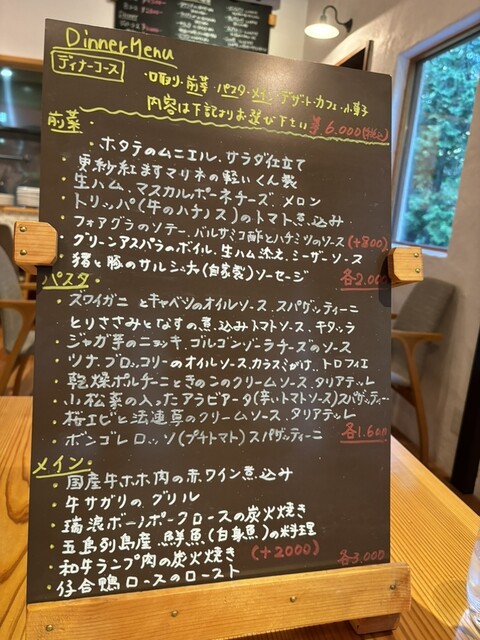 Dinner Menu
ディナーコース
・口取り・前菜・パスタ・メイン・デザート・カフェ・小菓子
内容は下記よりお選び下さい ¥6.000(税込)
前菜・
・ホタテのムニエル、サラダ仕立て
・更紗紅ますマリネの軽いくん製
・生ハム、マスカルポーネチーズ、メロン
・トリッパ(牛のハチノス)のトマト煮込み
・フォアグラのソテー、バルサミコ酢とハチミツのソース(+800)
・グリーンアスパラのボイル、生ハム添え、シーザーソース
・猪と豚のサルシッチャ(自家製)ソーセージ 各2.000
パスタ・
・ズワイガニとキャベツのオイルソース、スパゲッティーニ
・とりささみとなすの煮込みトマトソース、キタッラ
・ジャガ芋のニョッキ、ゴルゴンゾーラチーズのソース
・ツナ、ブロッコリーのオイルソース、カラスミがけ、トロフィエ
・乾燥ポルチーニときのこのクリームソース、タリアテッレ
・小松菜の入ったアラビアータ(辛いトマトソース)スパゲッティー
・桜エビと法連草のクリームソース、タリアテッレ
・ボンゴレ ロッソ(プチトマト)スパゲッティーニ 各1.600
メイン・
・国産牛ホホ肉の赤ワイン煮込み
・牛サガリのグリル
・瑞浪ボーノポークロースの炭火焼き
・五島列島産、鮮魚(白身魚)の料理
・和牛ランプ肉の炭火焼き (+2000) 各3.000
・仔合鴨ロースのロースト